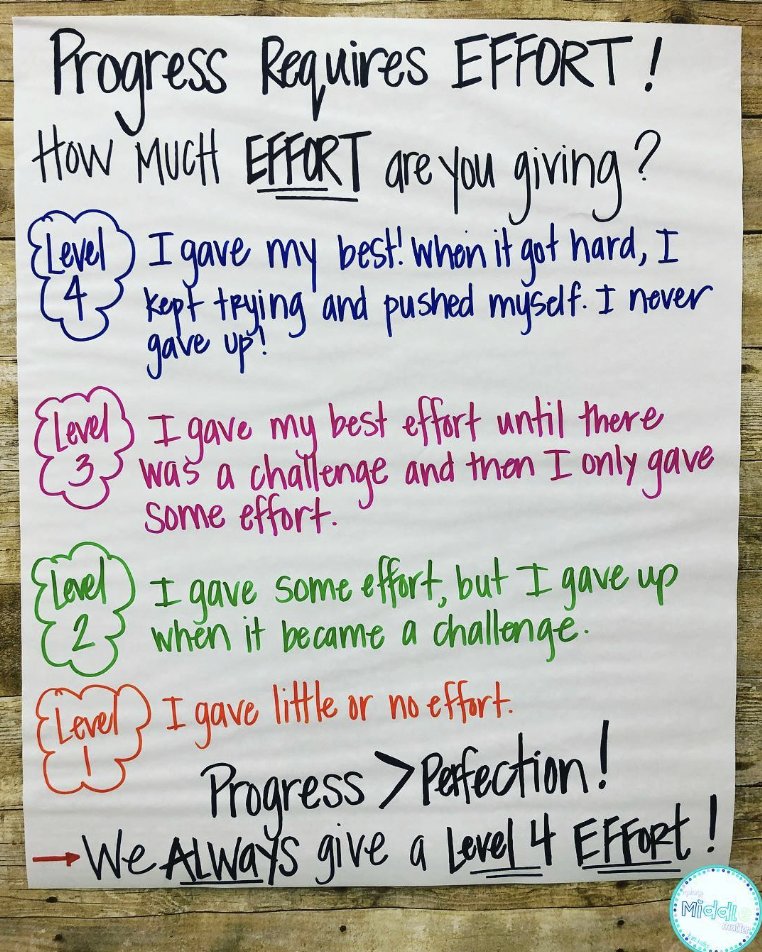 Progress Requires EFFORT!
How MUCH EFFORT are you giving?
Level
4
I gave my best! When it got hard, I
kept trying and pushed myself. I never
gave up!
Level
3
I gave my best effort until there
was a challenge and then I only gave
some effort.
Level
2
I gave some effort, but I gave up
when it became a challenge.
Level
1
I gave little or no effort.
Progress > Perfection!
→ We ALWAYS give a Level 4 EFFORT!
Middle